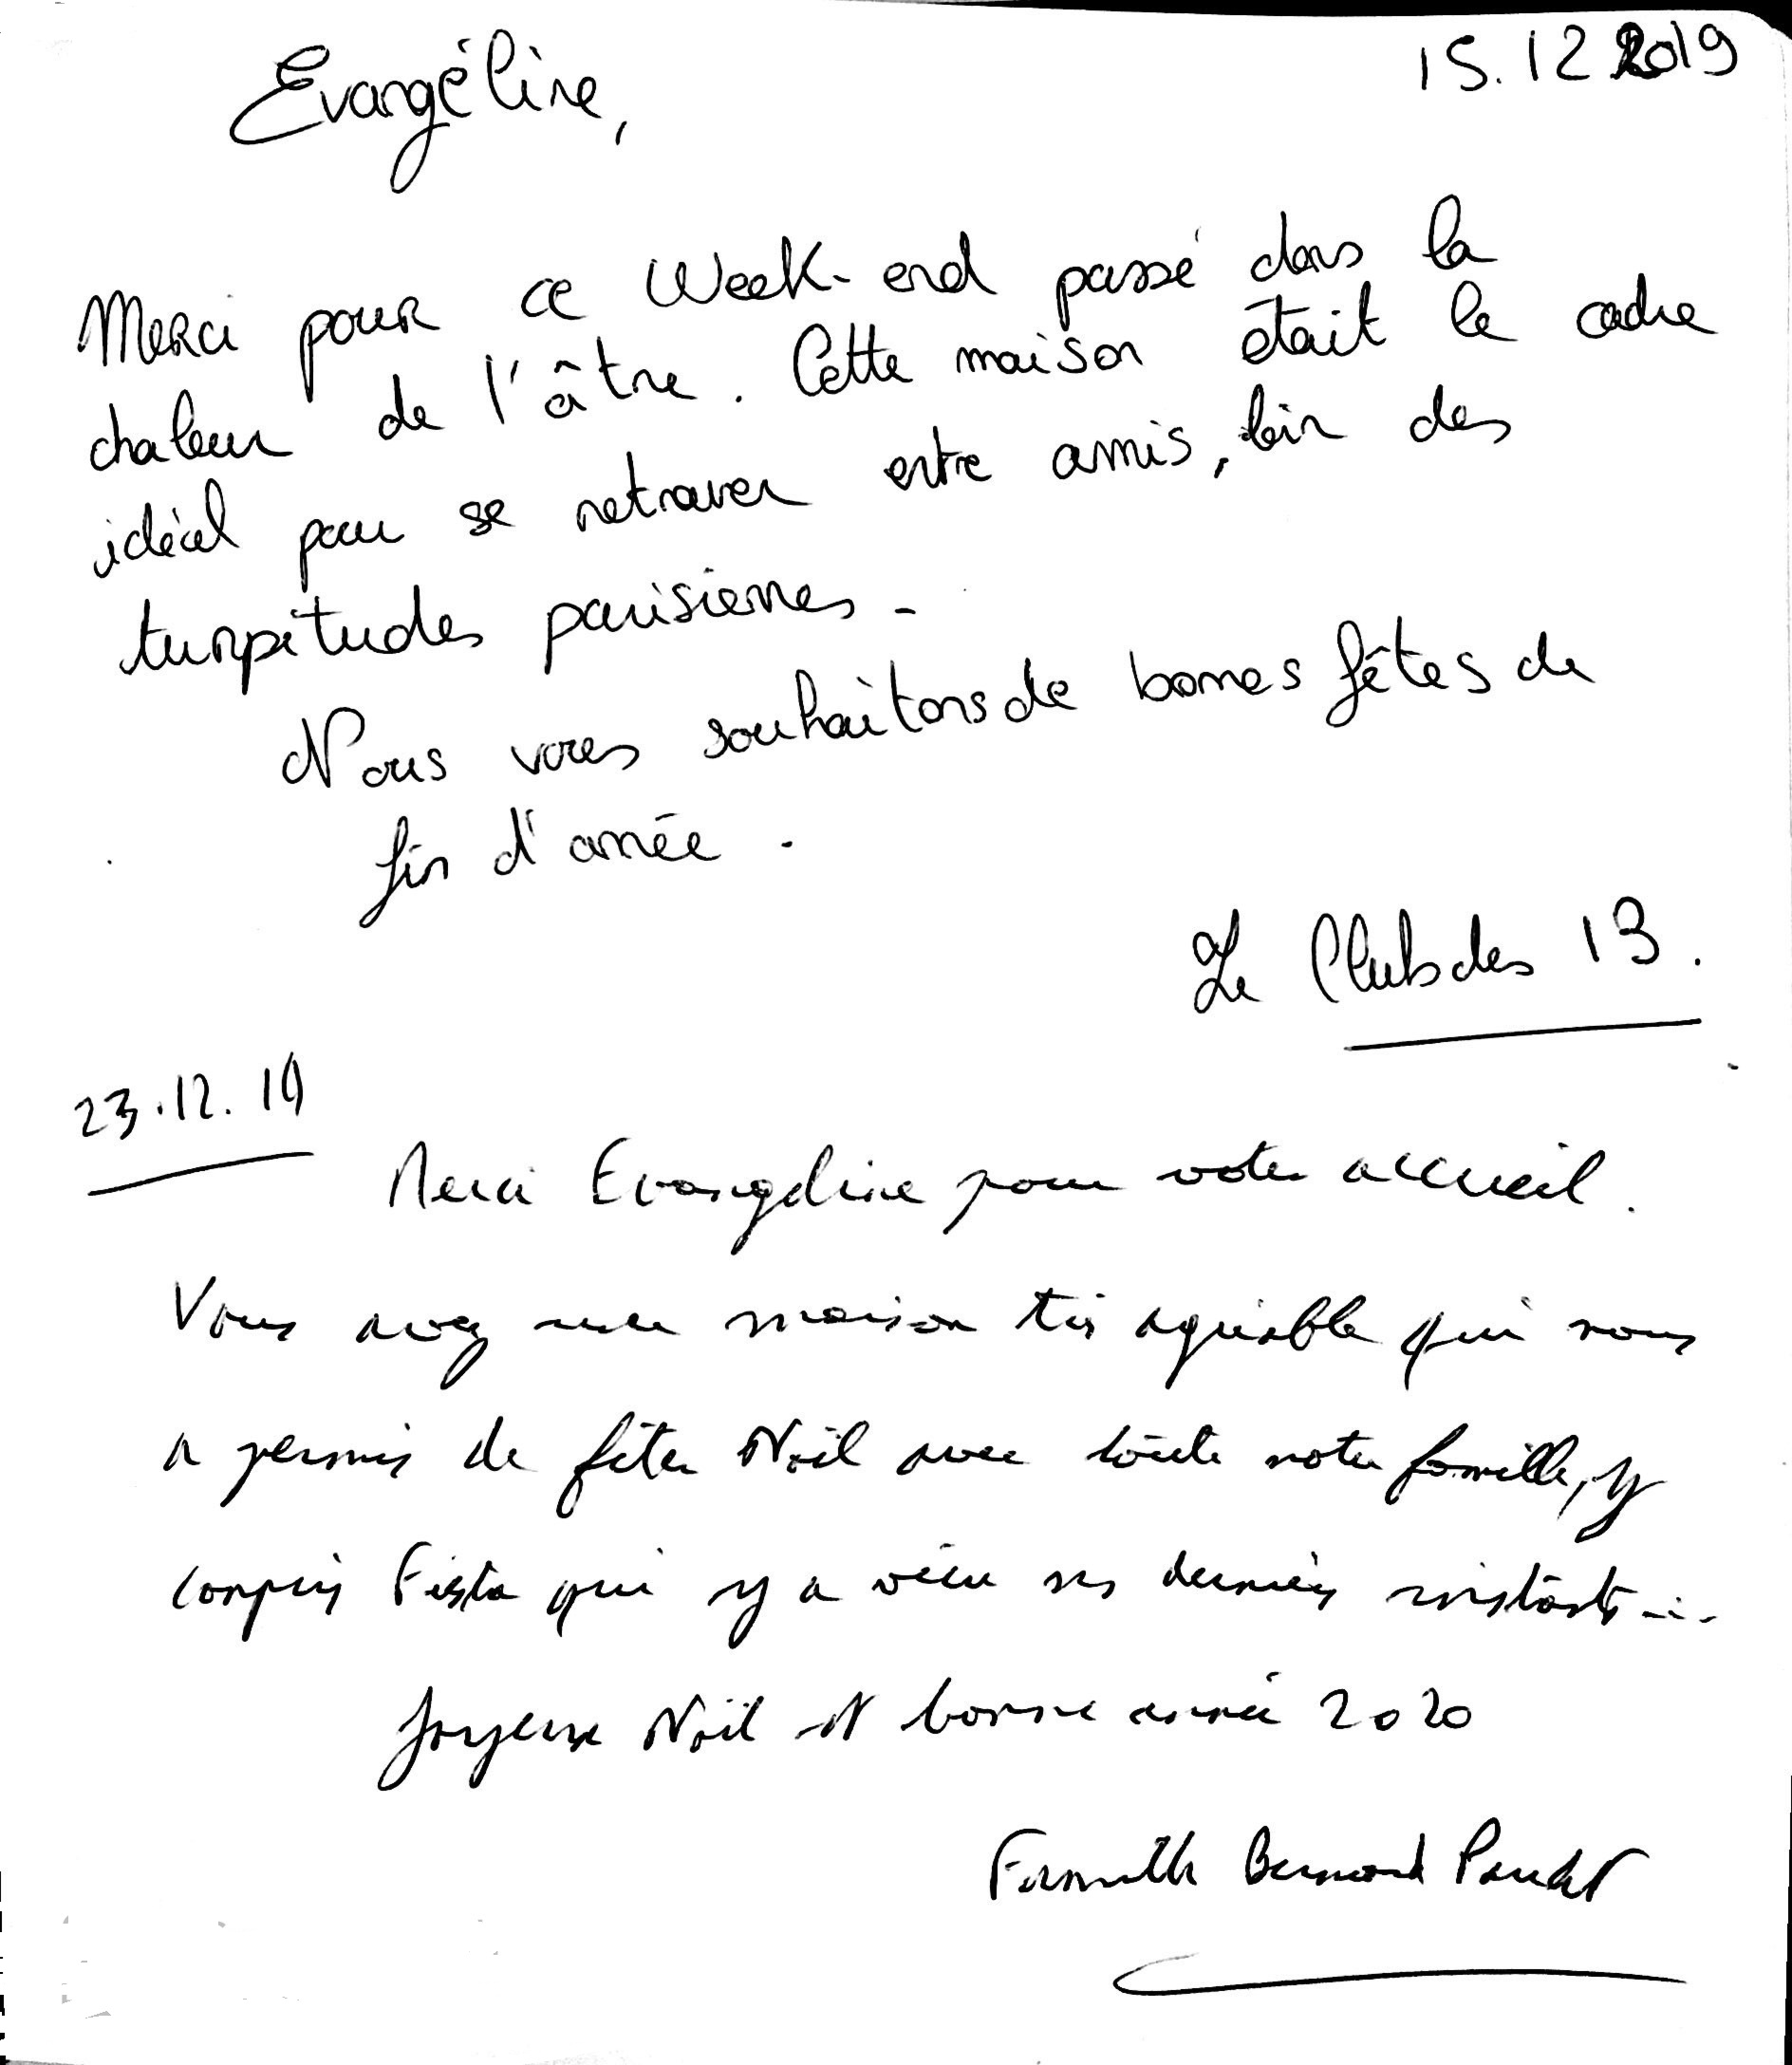 15.12 2019
Evangéline,
Merci pour ce Week-end passé dans la
chaleur de l'âtre. Cette maison était le cadre
idéal pour se retrouver entre amis, loin des
turpitudes parisiennes.
Nous vous souhaitons de bonnes fêtes de
fin d'année.
Le Club des 13.
23.12.19
Merci Evangeline pour votre accueil.
Vous avez une maison très agréable qui nous
a permis de fêter Noël avec toute notre famille, y
compris Fiesta qui y a vécu ses derniers instants...
Joyeux Noël et bonne année 2020
Famille Bernard